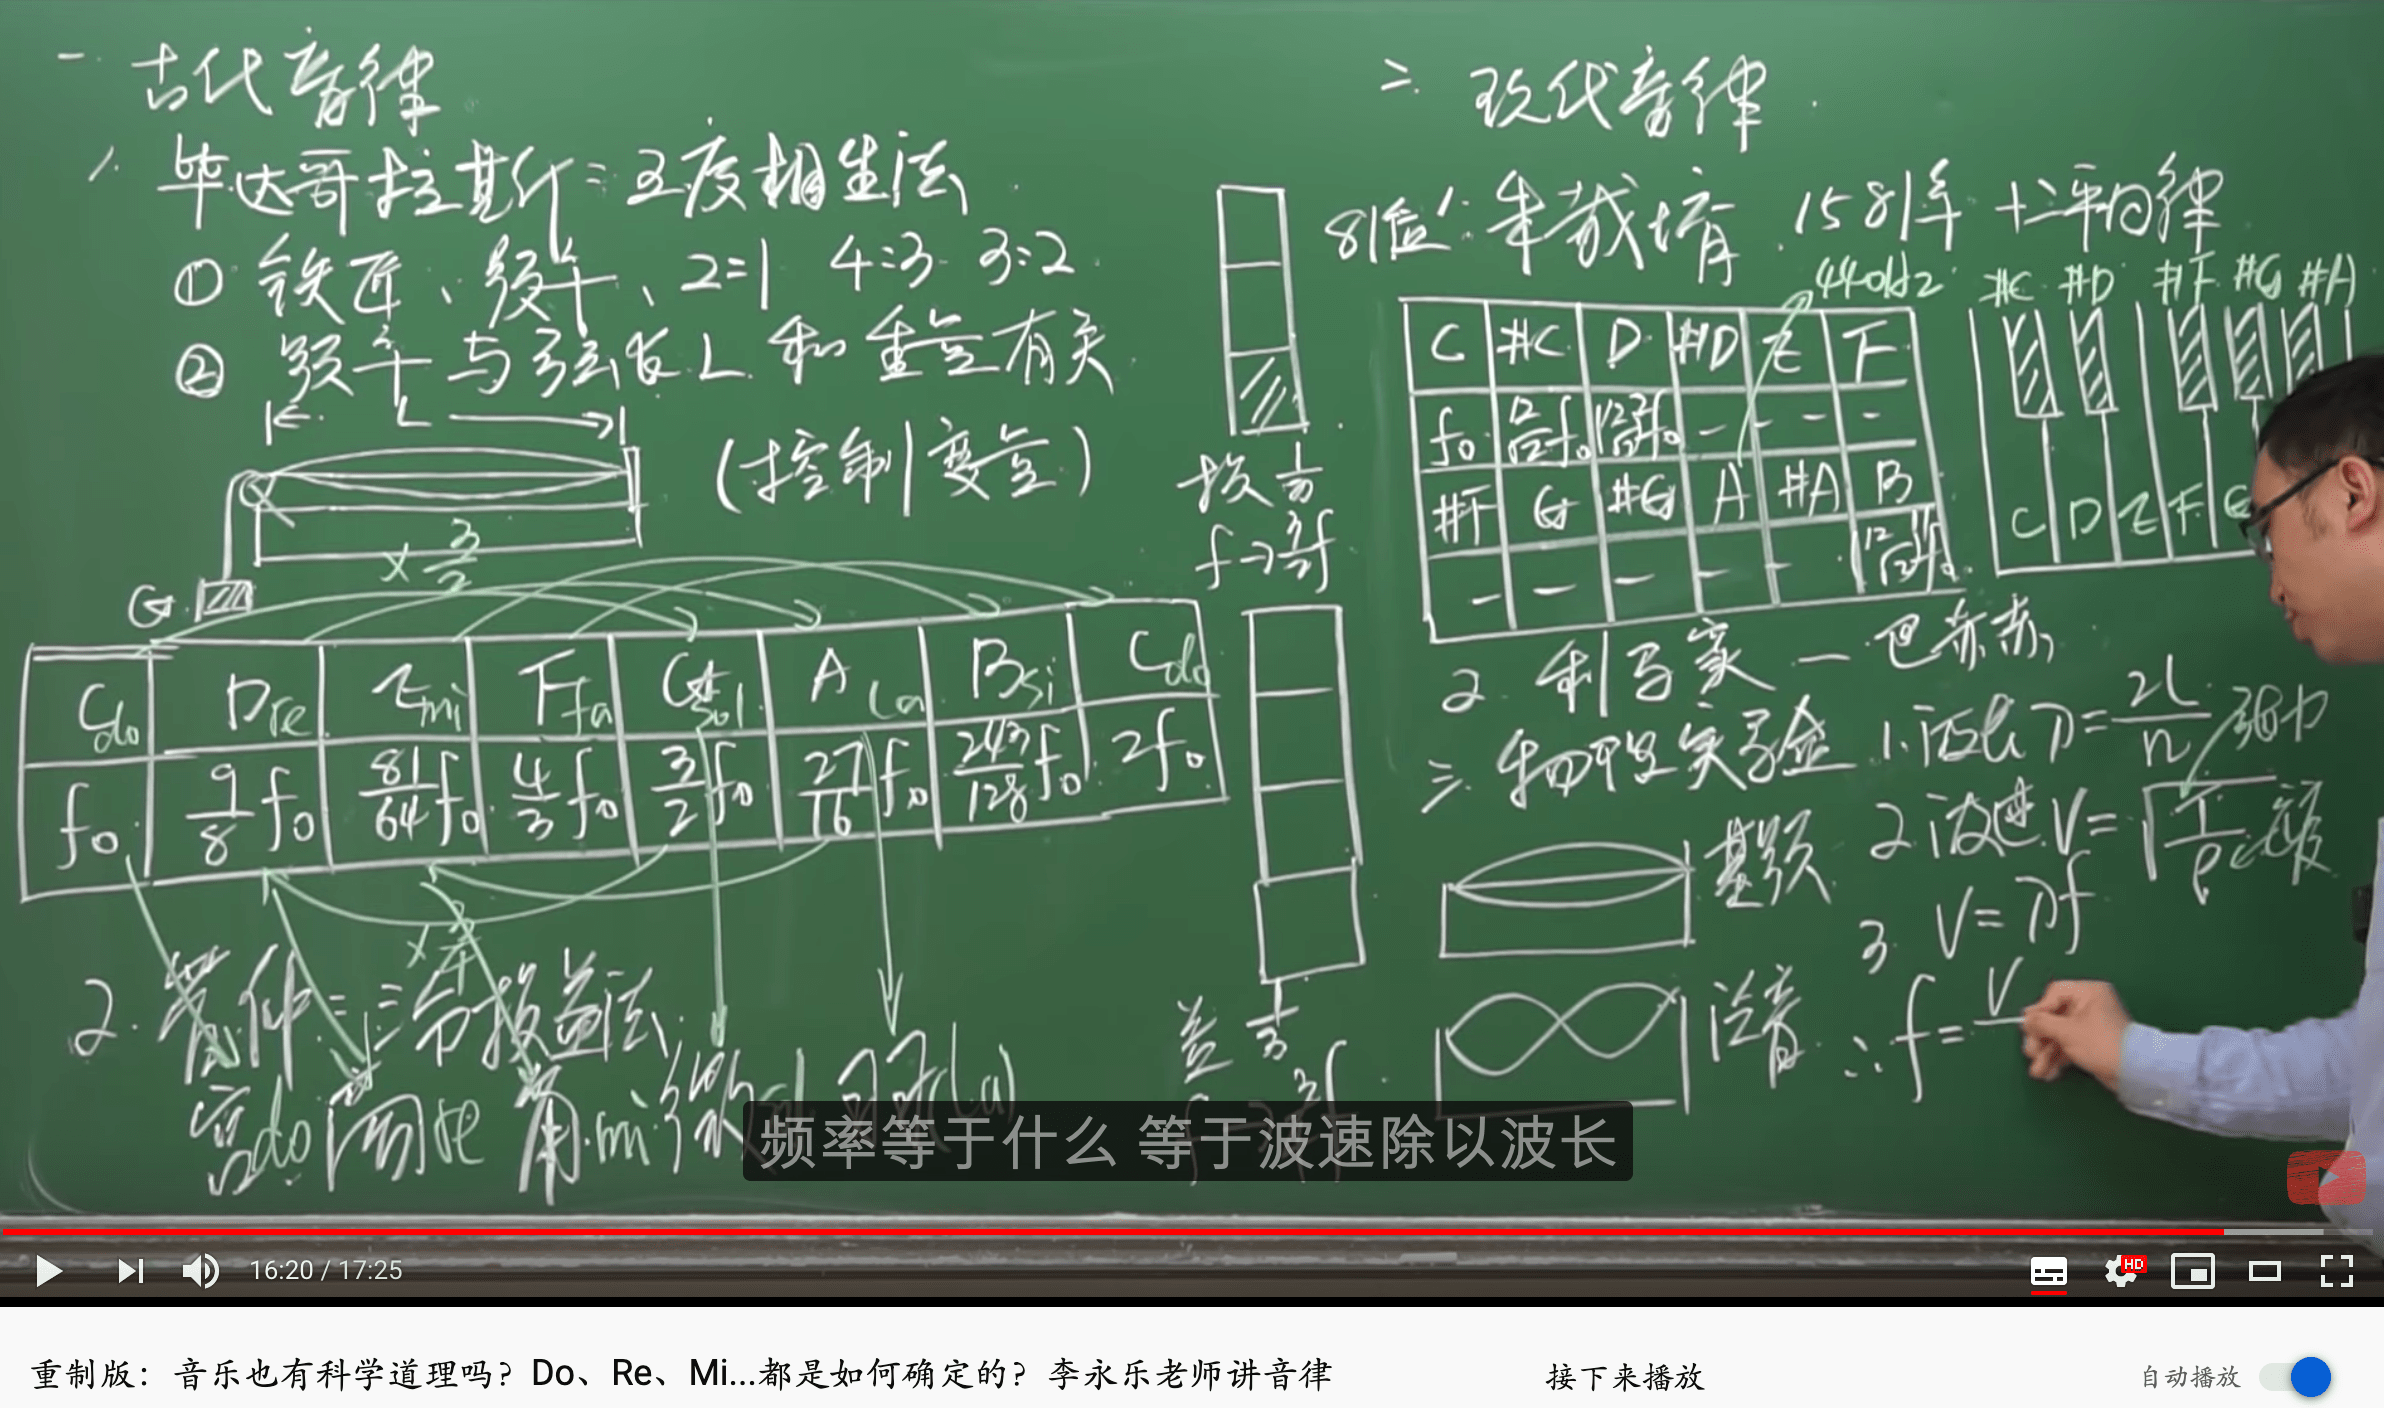 一 古代音律
1. 毕达哥拉斯：五度相生法
① 铁匠、频率、2=1 4:3 3:2
② 频率与弦长L和重量有关
L
(控制变量)
× 3/2
G
Cdo Dre Emi Ffa Gsol Ala Bsi Cdo
f0 9/8 f0 81/64 f0 4/3 f0 3/2 f0 27/16 f0 243/128 f0 2f0
× 3/4
2. 管仲：三分损益法
宫do 商re 角mi 徵 羽(la)
损 1/3
f→3/2f
益 1/3
二. 现代音律
81值
1. 朱载堉 1581年 十二平均律
440Hz
C #C D #D E F
f0
#F G #G A #A B
#C #D #F #G #A
C D E F G
2. 利玛窦 — 巴赫
三. 物理实验 1. 波长 λ = 2L/n 张力
2. 波速 V = √T/ρ 密度
3. V = λf
∴ f = V
基频
泛音
频率等于什么 等于波速除以波长
16:20 / 17:25
HD
重制版：音乐也有科学道理吗？Do、Re、Mi...都是如何确定的？李永乐老师讲音律
接下来播放
自动播放